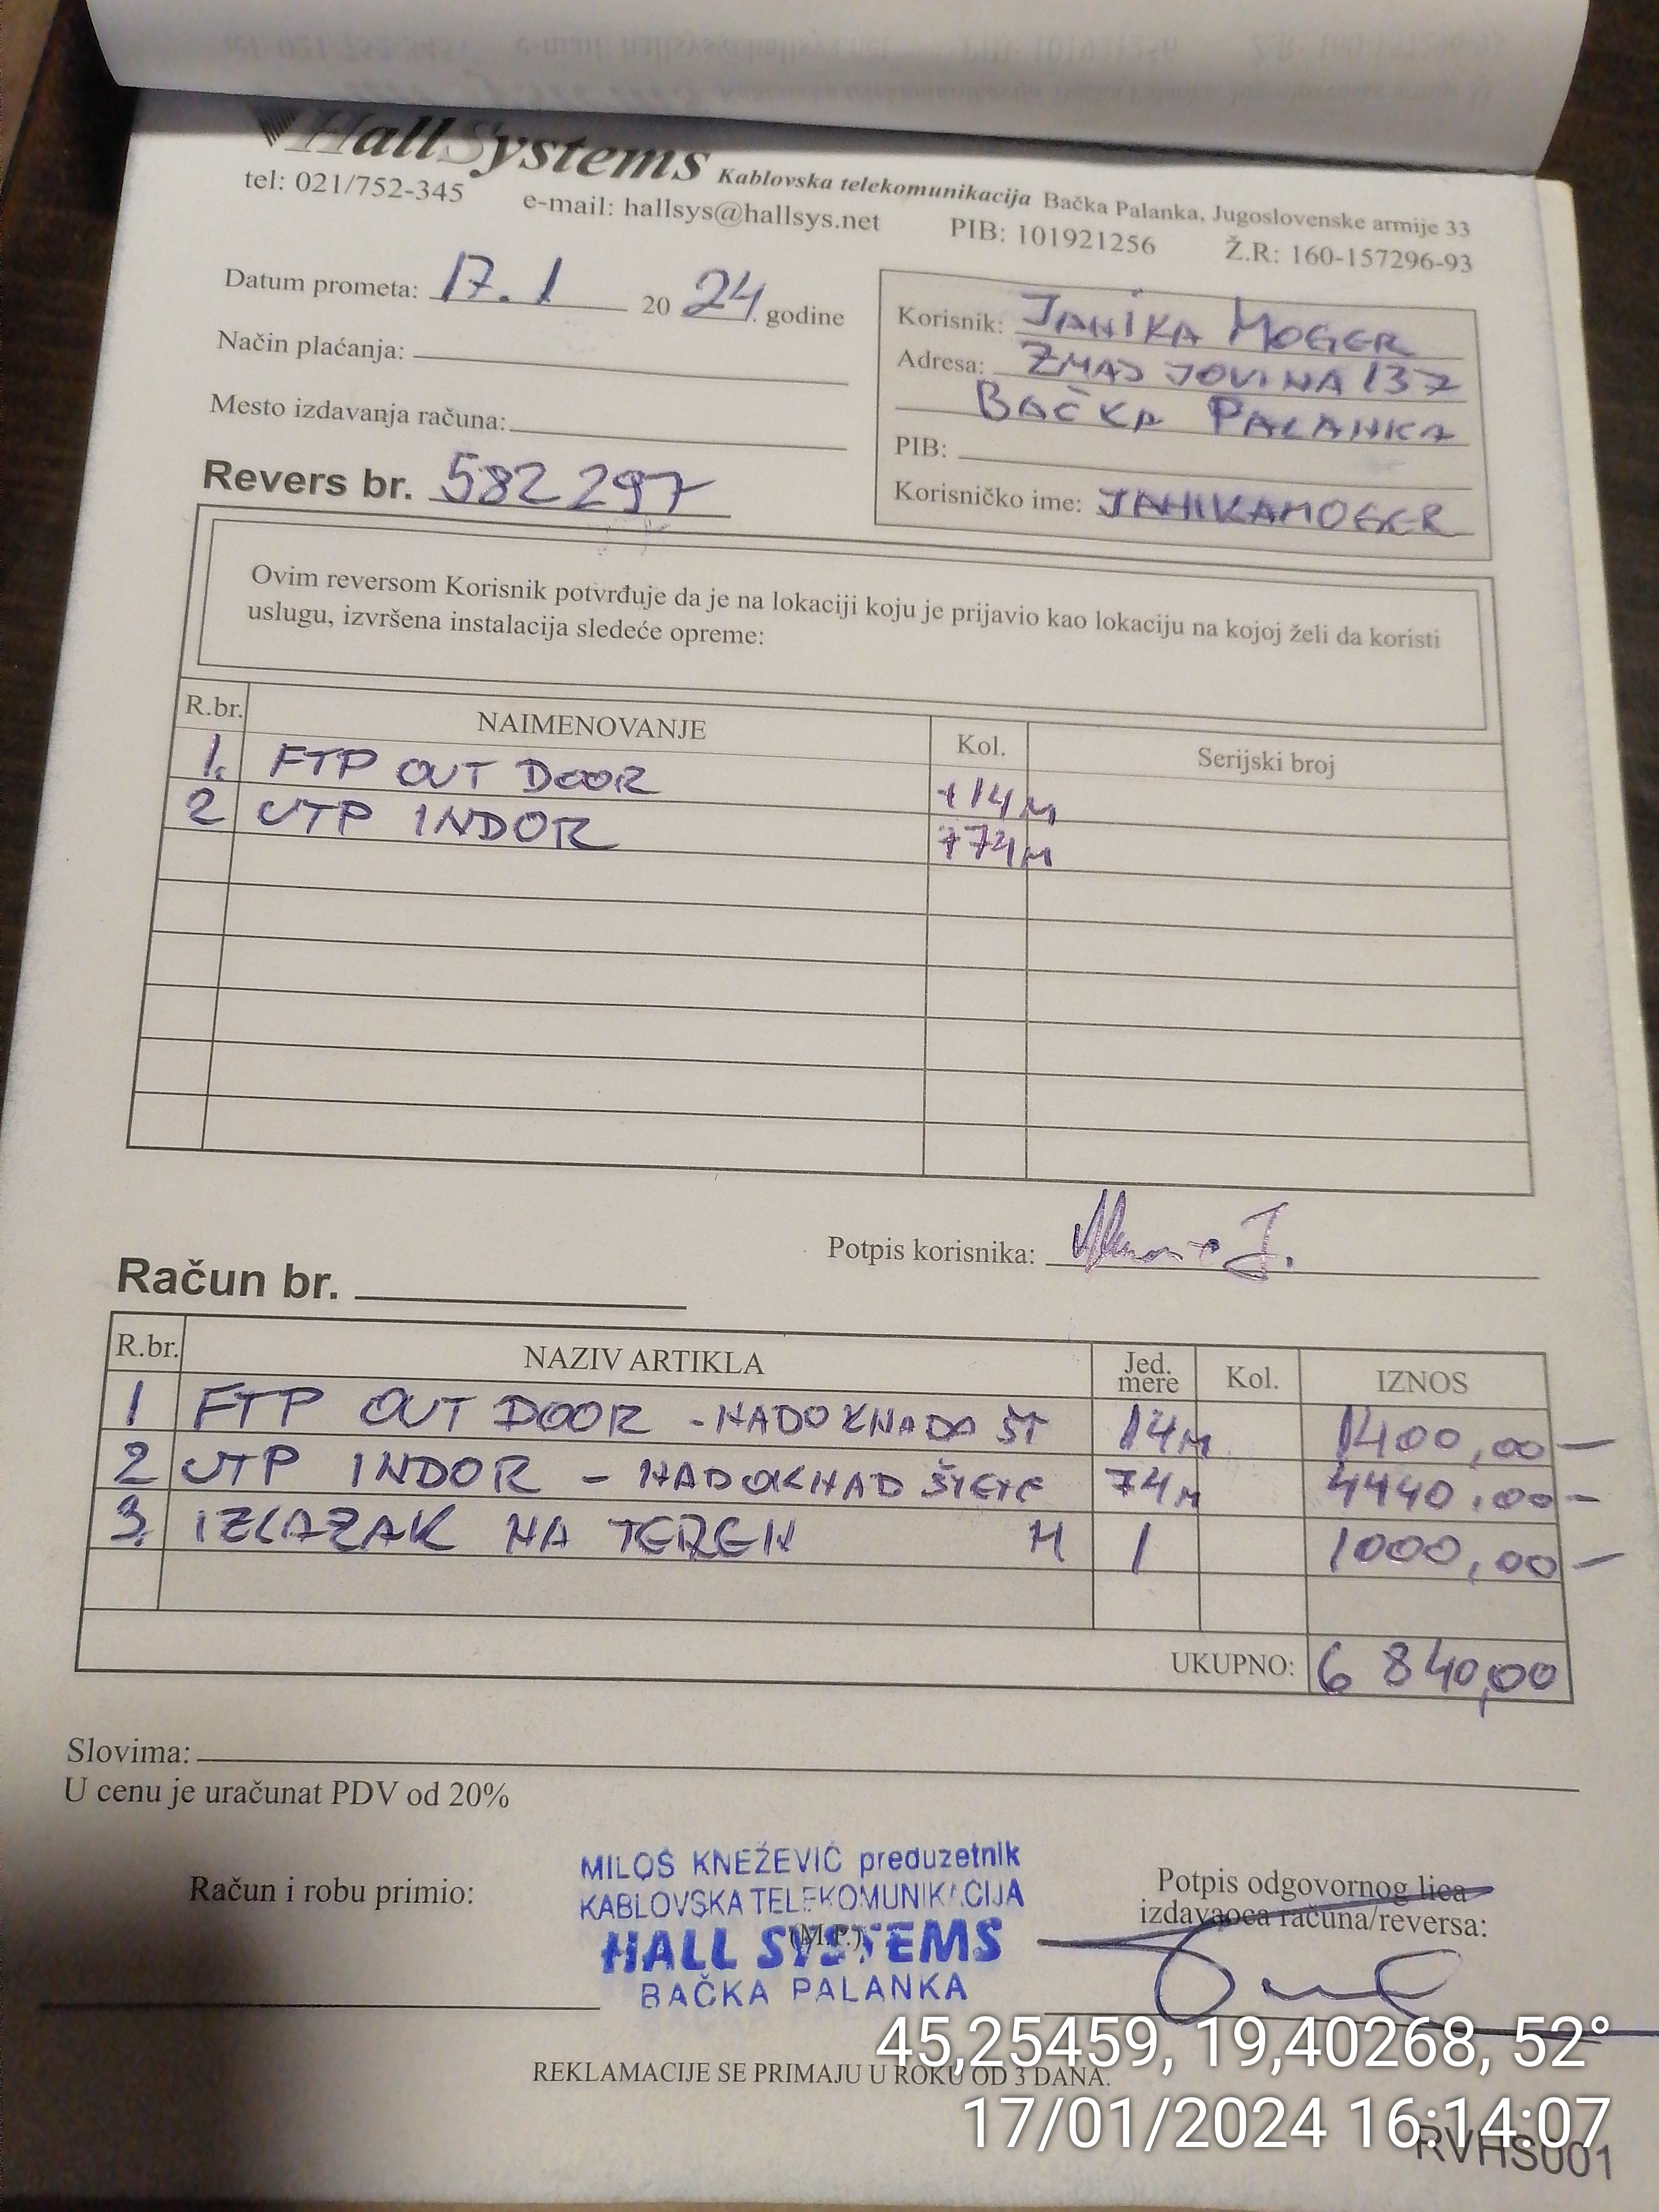 HallSystems Kablovska telekomunikacija Bačka Palanka, Jugoslovenske armije 33
tel: 021/752-345 e-mail: hallsys@hallsys.net PIB: 101921256 Ž.R: 160-157296-93
Datum prometa: 17.1 20 24. godine
Način plaćanja:
Mesto izdavanja računa:
Revers br. 582297
Korisnik: JANIKA MOGER
Adresa: ZMAJ JOVINA 137
BAČKA PALANKA
PIB:
Korisničko ime: JANIKAMOGER
Ovim reversom Korisnik potvrđuje da je na lokaciji koju je prijavio kao lokaciju na kojoj želi da koristi
uslugu, izvršena instalacija sledeće opreme:
R.br. NAIMENOVANJE Kol. Serijski broj
1. FTP OUT DOOR +14M
2 UTP INDOR +74M
Potpis korisnika:
Račun br.
R.br. NAZIV ARTIKLA Jed. mere Kol. IZNOS
1 FTP OUT DOOR - NADOKNADA ŠT 14M 1400,00-
2 UTP INDOR - NADOKNAD ŠTETE 74M 4440,00-
3. IZLAZAK NA TEREN M 1 1000,00-
UKUPNO: 6 840,00
Slovima:
U cenu je uračunat PDV od 20%
Račun i robu primio:
MILOŠ KNEŽEVIĆ preduzetnik
KABLOVSKA TELEKOMUNIKACIJA
(M.P.)
HALL SYSTEMS
BAČKA PALANKA
Potpis odgovornog lica
izdavaoca računa/reversa:
45,25459, 19,40268, 52°
REKLAMACIJE SE PRIMAJU U ROKU OD 3 DANA.
17/01/2024 16:14:07
RVHS001